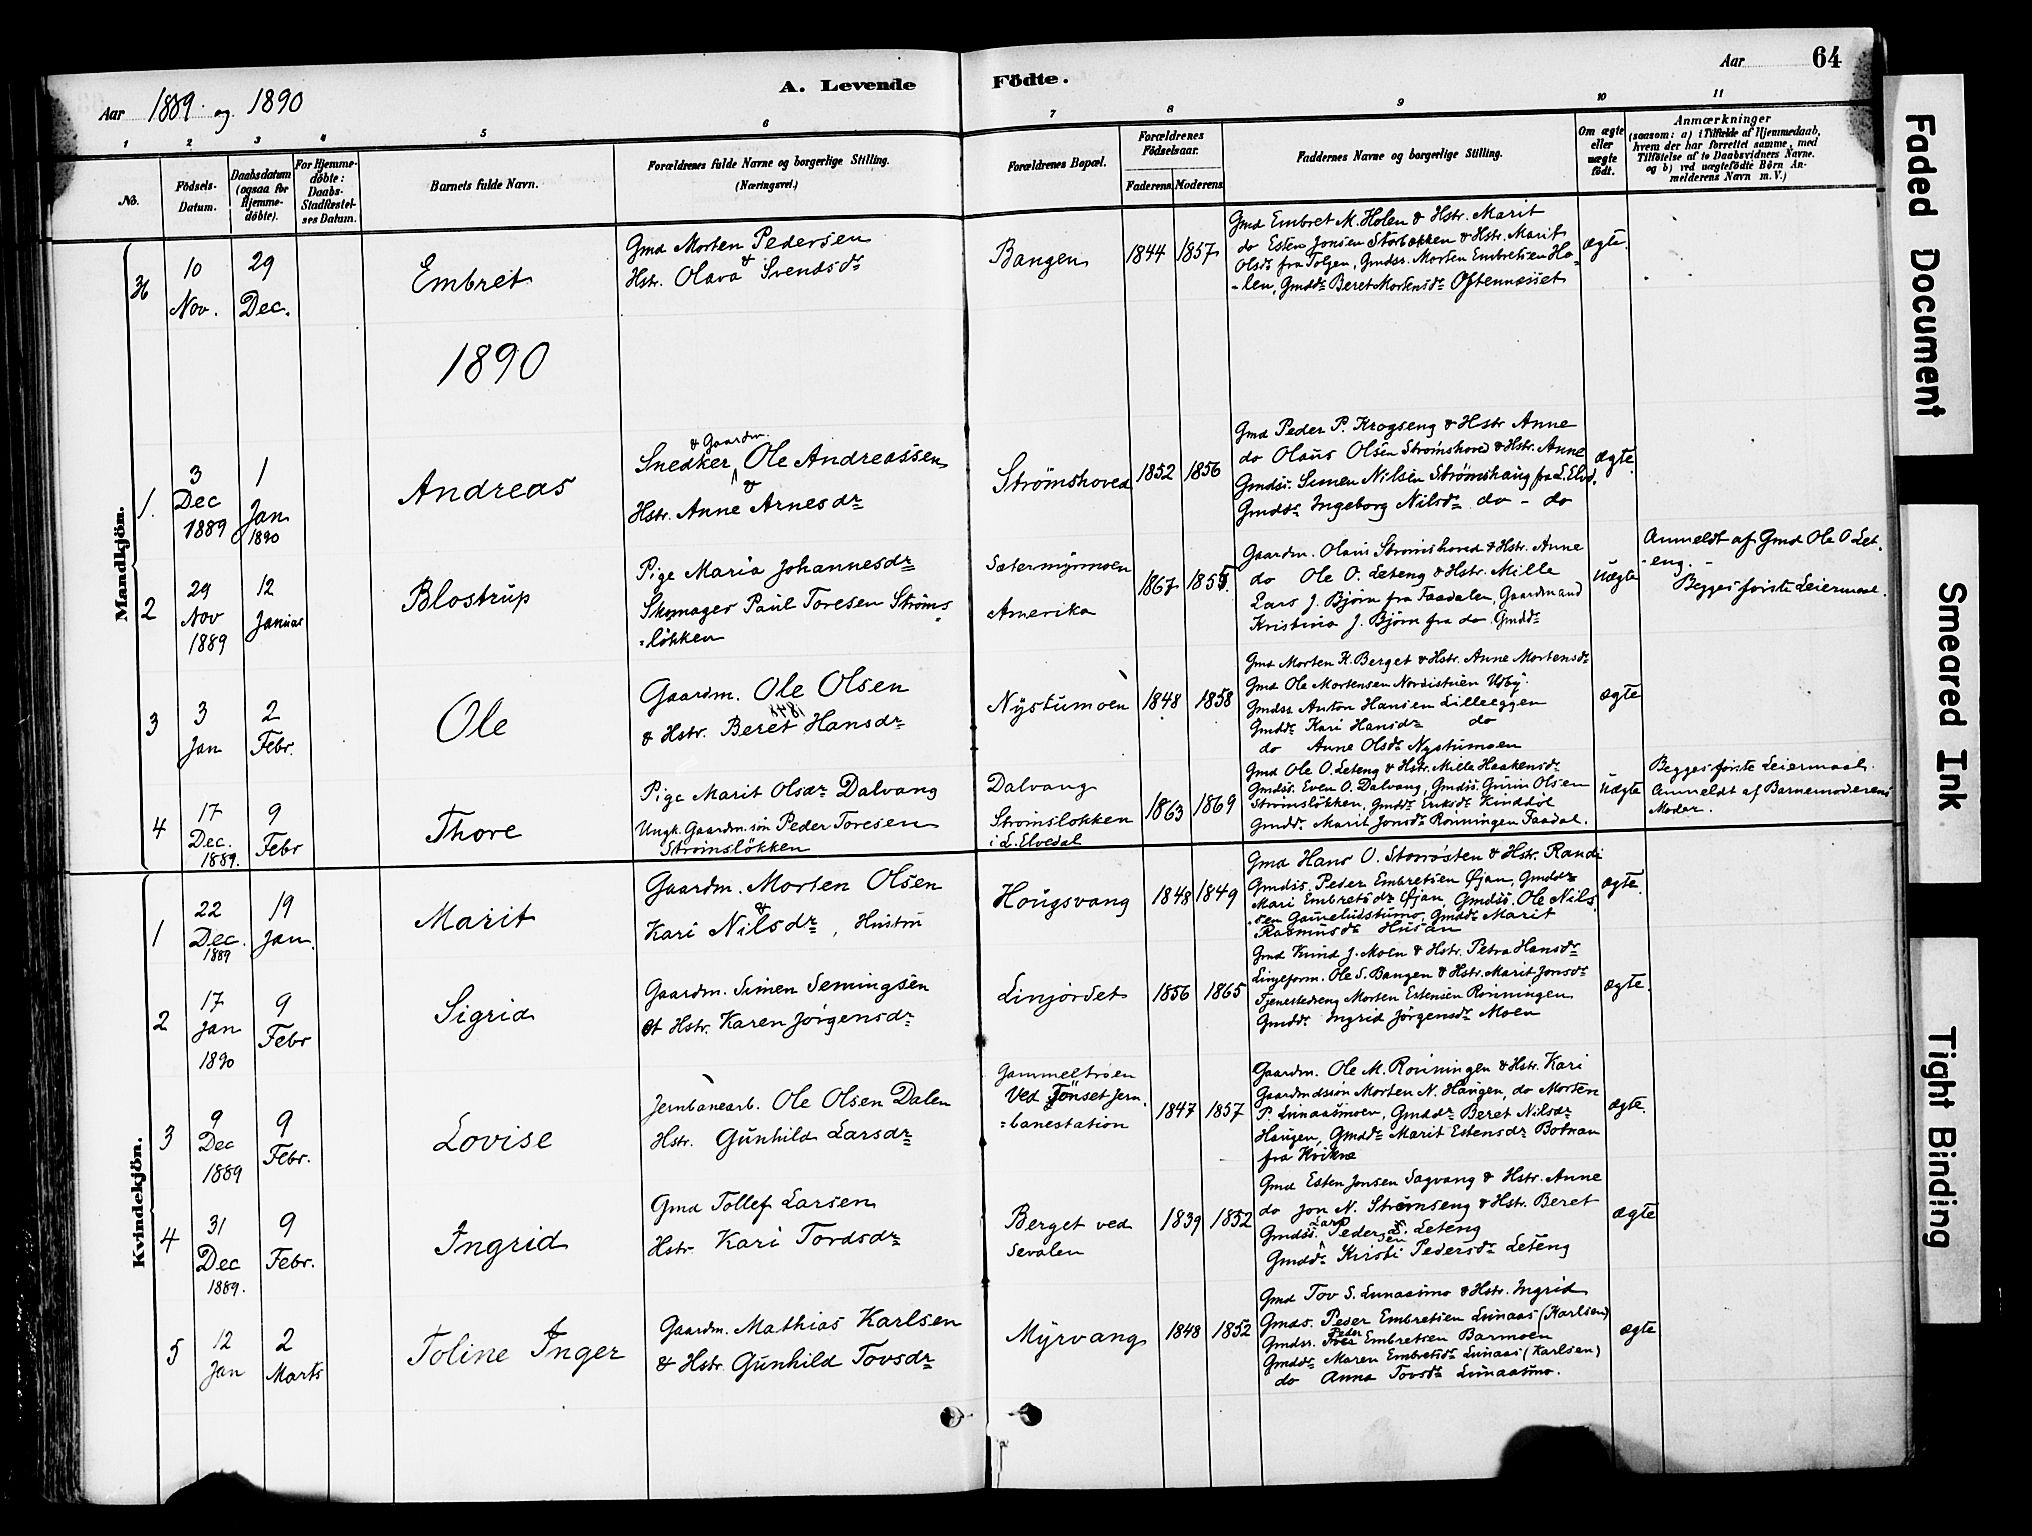 Aar 1889 og 1890
A. Levende Födte.
Aar 64
1 2 3 4 5 6 7 8 9 10 11
No.
Födsels-
Datum.
Daabsdatum
(ogsaa for
Hjemme-
döbte).
For Hjemme-
döbte:
Daabs-
Stadfæstel-
ses Datum.
Barnets fulde Navn.
Forældrenes fulde Navne og borgerlige Stilling.
(Næringsvei.)
Forældrenes Bopæl.
Forældrenes
Födselsaar.
Faderens. Moderens.
Faddernes Navne og borgerlige Stilling.
Om ægte
eller
uægte
födt.
Anmærkninger
(saasom: a) i Tilfælde af Hjemmedaab,
hvem der har forrettet samme, med
Tilföielse af to Daabsvidners Navne.
og b) ved uægtefödte Börn An-
melderens Navn m. V.)
Mandkjön.
10
Nov.
29
Dec.
Embret
Gmd Morten Pedersen
&
Hstr. Olava Svendsdr
Bangen
1844 1857
Gmd Embret M. Holen & Hstr. Marit
do Esten Jonsen Storbakken & Hstr. Marit
Olsdr fra Tolgen, Gmdss. Morten Embretsen Ho-
-len, Gmddr Beret Mortensdr Oftennæsset
ægte.
1890
1.
3
Dec
1889
1
Jan
1890
Andreas
& Gaardm.
Snedker Ole Andreassen
&
Hstr. Anne Arnesdr
Strømshoved
1852 1856
Gmd Peder P. Krogseng & Hstr Anne
do Olaus Olsen Strømshoved & Hstr. Anne
Gmdss. Simen Nilsen Strømshaug fra L. Elvd.
Gmddr Ingeborg Nilsdr do - do
ægte
2
29
Nov
1889
12
Januar
Blostrup
Pige Maria Johannesdr
Skomager Paul Toresen Strøms
=løkken
Sætermyrmoen
Amerika
1867 1855.
Gaardm. Olaus Strømshoved & Hstr. Anne
do Ole O. Leteng & Hstr. Mille
Lars J. Bjørn fra Faadalen, Gaardmand
Kristina J. Bjørn fra do Gmddr
uægte
Anmeldt af Gmd Ole O Let-
-eng. -
Begges første Leiermaal.
3
3
Jan
2
Febr.
Ole
Gaardm. Ole Olsen
& Hstr. Beret Hansdr
Nystumoen
1848 1858
Gmd Morten K. Berget & Hstr. Anne Mortensdr
Gmd Ole Mortensen Nordistuen Usby.
Gmdss Anton Hansen Lilleeggen
Gmddr Kari Hansdr do
do Anne Olsdr Nystumoen
ægte
4
17
Dec.
1889.
9
Febr
Thore
Pige Marit Olsdr Dalvang
Ungk. Gaardm.søn Peder Toresen
Strømsløkken
Dalvang
Strømsløkken
i L. Elvedal
1863 1869
Gmd Ole O. Leteng & Hstr. Mille Haakensdr
Gmdss. Even O. Dalvang, Gmdss. Olsen
Strømsløkken, Gmddr Eriksdr
Gmddr. Marit Jonsdr Rønningen Faadal.
uægte
Begges første Leiermaal.
Anmeldt af Barnemoderens
Moder
Kvindekjön.
1
22
Dec.
1889
19
Jan.
Marit
Gaardm. Morten Olsen
&
Kari Nilsdr, Hustru
Hougsvang
1848 1849
Gmd Hans O. Storrøsten & Hstr. Randi
Gmdss. Peder Embretsen Øjan, Gmddr
Mari Embretsdr Øjan, Gmdss. Ole Nils
sen Gammelustumo, Gmddr Marit
Rasmusdr Husan
ægte.
2
17
Jan
1890
9
Febr
Sigrid
Gaardm. Simen Semingsen
& Hstr. Karen Jørgensdr
Linjordet
1856 1865
Gmd Knud J. Moen & Hstr. Petra Hansdr
Linjeform. Ole S. Bangen & Hstr. Marit Jonsdr
Tjenestedreng Morten Estensen Rønningen
Gmddr Ingrid Jørgensdr Moen
ægte.
3
9
Dec
1889
9
Febr.
Lovise
Jernbanearb. Ole Olsen Dalen
Hstr. Gunhild Larsdr
Gammeltrøen
Ved Tönset Jern.
=banestation
1847 1857
Gaardm. Ole M. Rønningen & Hstr. Kari
Gaardmdssøn Morten N. Haugen, do Morten
P. Lunaasmoen, Gmddr Beret Nilsdr
Haugen, Gmddr Marit Estensdr Botnan
fra Kvikne
ægte.
4
31
Dec
1889.
9
Febr.
Ingrid
Gmd Tollef Larsen
Hstr. Kari Tordsdr
Berget ved
Sevalen
1839 1852
Gmd Esten Jonsen Sagvang & Hstr. Anne
do Jon N. Strømseng & Hstr. Beret
Gmdss. Lars Pedersen Leteng
Gmddr Kristi Pedersdr Leteng
ægte
5
12
Jan
2
Marts
Toline Inger
Gaardm. Mathias Karlsen
& Hstr. Gunhild Tovsdr
Myrvang
1848 1852
Gmd Tov S. Lunaasmo & Hstr. Ingrid
Gmds. Peder Embretsen Lunaas (Karlsen)
Gmdss. Peder Embretsen Barmoen
Gmddr Maren Embretsdr Lunaas (Karlsen)
do Anna Tovsdr Lunaasmo.
ægte
Faded Document
Smeared Ink
Tight Binding